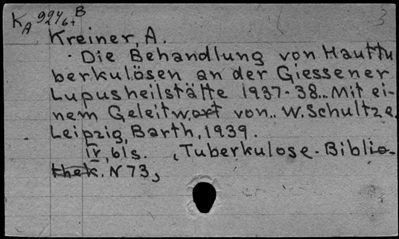 K A 924/61 B
3
Kreiner, A.
· Die Behandlung von Hauttu
berkulösen an der Giessener
Lupusheilstätte 1937-38.. Mit ei-
nem Geleitwort von.. W. Schultze.
Leipzig, Barth, 1939.
IV, 61 s. , Tuberkulose-Biblio-
thek. N 73,